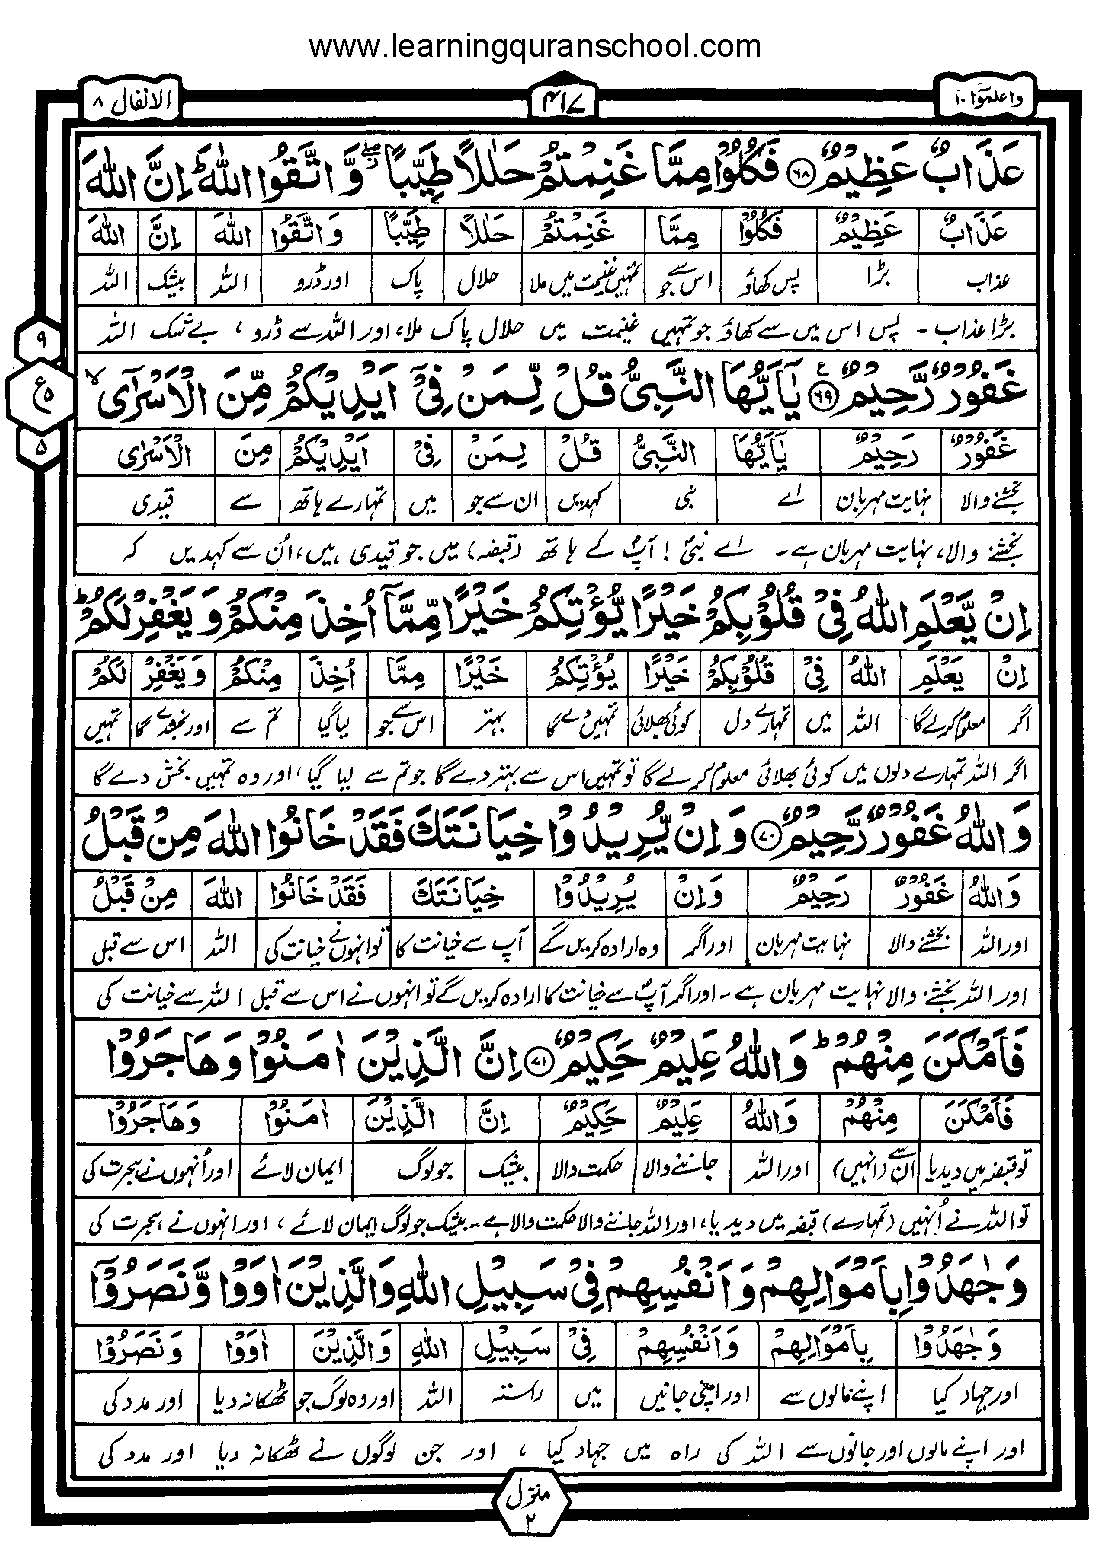 www.learningquranschool.com
واعلموا ١٠
٤١٧
الانفال ٨
عَذَابٌ عَظِيْمٌ ﴿٦٨﴾ فَكُلُوْا مِمَّا غَنِمْتُمْ حَلٰلًا طَيِّبًا ۖ وَّاتَّقُوا اللّٰهَ ؕ اِنَّ اللّٰهَ
عَذَابٌ عَظِيْمٌ فَكُلُوْا مِمَّا غَنِمْتُمْ حَلٰلًا طَيِّبًا وَاتَّقُوا اللّٰهَ اِنَّ اللّٰهَ
عذاب بڑا پس کھاؤ اس سے جو تمہیں غنیمت میں ملا حلال پاک اور ڈرو اللہ بیشک اللہ
بڑا عذاب - پس اس میں سے کھاؤ جو تمہیں غنیمت میں حلال پاک ملا، اور اللہ سے ڈرو ، بے شک اللہ
٩
ع ٥
٥
غَفُوْرٌ رَّحِيْمٌ ﴿٦٩﴾ يٰۤاَيُّهَا النَّبِىُّ قُلْ لِّمَنْ فِىْۤ اَيْدِيْكُمْ مِّنَ الْاَسْرٰٓى ۙ
غَفُوْرٌ رَحِيْمٌ يٰۤاَيُّهَا النَّبِىُّ قُلْ لِمَنْ فِىْ اَيْدِيْكُمْ مِنَ الْاَسْرٰى
بخشنے والا نہایت مہربان اے نبی کہدیں ان سے جو میں تمہارے ہاتھ سے قیدی
بخشنے والا، نہایت مہربان ہے - اے نبیؐ ! آپؐ کے ہاتھ (قبضہ) میں جو قیدی ہیں، اُن سے کہدیں کہ
اِنْ يَّعْلَمِ اللّٰهُ فِىْ قُلُوْبِكُمْ خَيْرًا يُّؤْتِكُمْ خَيْرًا مِّمَّاۤ اُخِذَ مِنْكُمْ وَيَغْفِرْ لَكُمْ ؕ
اِنْ يَعْلَمِ اللّٰهُ فِىْ قُلُوْبِكُمْ خَيْرًا يُؤْتِكُمْ خَيْرًا مِمَّا اُخِذَ مِنْكُمْ وَيَغْفِرْ لَكُمْ
اگر معلوم کرے گا اللہ میں تمہارے دل کوئی بھلائی تمہیں دے گا بہتر اس سے جو لیا گیا تم سے اور بخشدے گا تمہیں
اگر اللہ تمہارے دلوں میں کوئی بھلائی معلوم کرے گا تو تمہیں اس سے بہتر دے گا جو تم سے لیا گیا، اور وہ تمہیں بخش دے گا
وَاللّٰهُ غَفُوْرٌ رَّحِيْمٌ ﴿٧٠﴾ وَاِنْ يُّرِيْدُوْا خِيَانَتَكَ فَقَدْ خَانُوا اللّٰهَ مِنْ قَبْلُ
وَاللّٰهُ غَفُوْرٌ رَحِيْمٌ وَاِنْ يُرِيْدُوْا خِيَانَتَكَ فَقَدْ خَانُوا اللّٰهَ مِنْ قَبْلُ
اور اللہ بخشنے والا نہایت مہربان اور اگر وہ ارادہ کریں گے آپ سے خیانت کا تو انہوں نے خیانت کی اللہ اس سے قبل
اور اللہ بخشنے والا نہایت مہربان ہے - اور اگر آپؐ سے خیانت کا ارادہ کریں گے تو انہوں نے اس سے قبل اللہ سے خیانت کی
فَاَمْكَنَ مِنْهُمْ ؕ وَاللّٰهُ عَلِيْمٌ حَكِيْمٌ ﴿٧١﴾ اِنَّ الَّذِيْنَ اٰمَنُوْا وَهَاجَرُوْا
فَاَمْكَنَ مِنْهُمْ وَاللّٰهُ عَلِيْمٌ حَكِيْمٌ اِنَّ الَّذِيْنَ اٰمَنُوْا وَهَاجَرُوْا
تو قبضہ میں دیدیا ان سے (انہیں) اور اللہ جاننے والا حکمت والا بیشک جو لوگ ایمان لائے اور اُنہوں نے ہجرت کی
تو اللہ نے اُنہیں (تمہارے) قبضہ میں دیدیا، اور اللہ جاننے والا حکمت والا ہے - بیشک جو لوگ ایمان لائے ، اور انہوں نے ہجرت کی
وَجٰهَدُوْا بِاَمْوَالِهِمْ وَاَنْفُسِهِمْ فِىْ سَبِيْلِ اللّٰهِ وَالَّذِيْنَ اٰوَوْا وَّنَصَرُوْۤا
وَجٰهَدُوْا بِاَمْوَالِهِمْ وَاَنْفُسِهِمْ فِىْ سَبِيْلِ اللّٰهِ وَالَّذِيْنَ اٰوَوْا وَنَصَرُوْا
اور جہاد کیا اپنے مالوں سے اور اپنی جانیں میں راستہ اللہ اور وہ لوگ جو ٹھکانہ دیا اور مدد کی
اور اپنے مالوں اور جانوں سے اللہ کی راہ میں جہاد کیا ، اور جن لوگوں نے ٹھکانہ دیا اور مدد کی
منزل
٢